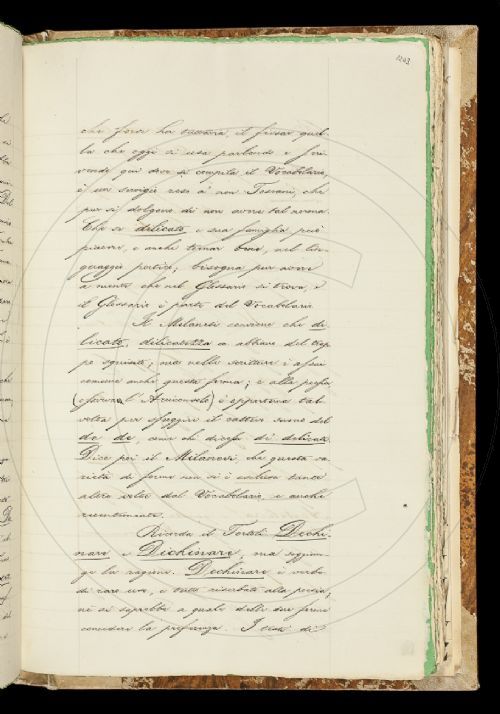 che forse ha tuttavia, il fissar quel-
la che oggi si usa parlando e scri-
vendo qui dove si compila il Vocabolario,
è un servigio reso a' non Toscani, che
pur si dolgono di non avere tal norma.
Che se dilicato, e sua famiglia può
piacere, e anche tornar bene, nel lin-
guaggio poetico; bisogna pur avere
a mente che nel Glossario si trova, e
il Glossario è parte del Vocabolario.
Il Milanesi conviene che di-
licato, dilicatezza sa altrove del trop-
po squisito; ma nella scrittura è assai
comune anche questa forma; e alla poesia
(osserva l'Arciconsolo) è opportuna tal-
volta per sfuggire il cattivo suono del
de de, come chi dicesse di delicato.
Dice poi il Milanesi, che questa va-
rietà di forme non si è esclusa tante
altre volte dal Vocabolario, e anche
recentemente.
Ricorda il Tortoli Dechi-
nare e Dichinare, ma soggiun-
ge la ragione. Dechinare è verbo
di raro uso, e tutto riserbato alla poesia;
nè si saprebbe a quale delle due forme
concedere la preferenza. I testi di
1203